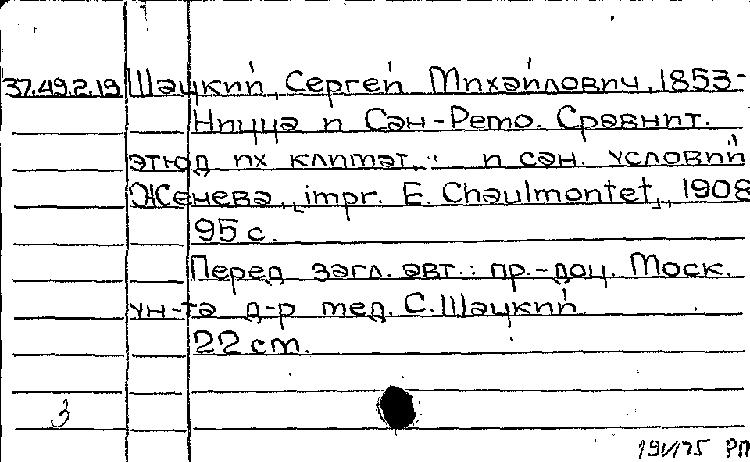 37.49.2.19 Шацкий, Сергей Михайлович, 1853-
Ницца и Сан-Ремо. Сравнит.
этюд их климат.: и сан. условий
Женева, [impr. E. Chaulmontet], 1908
95 с.
Перед загл. авт.: пр.-доц. Моск.
ун-та д-р мед. С. Шацкий
22 cm.
3
191/75 РП